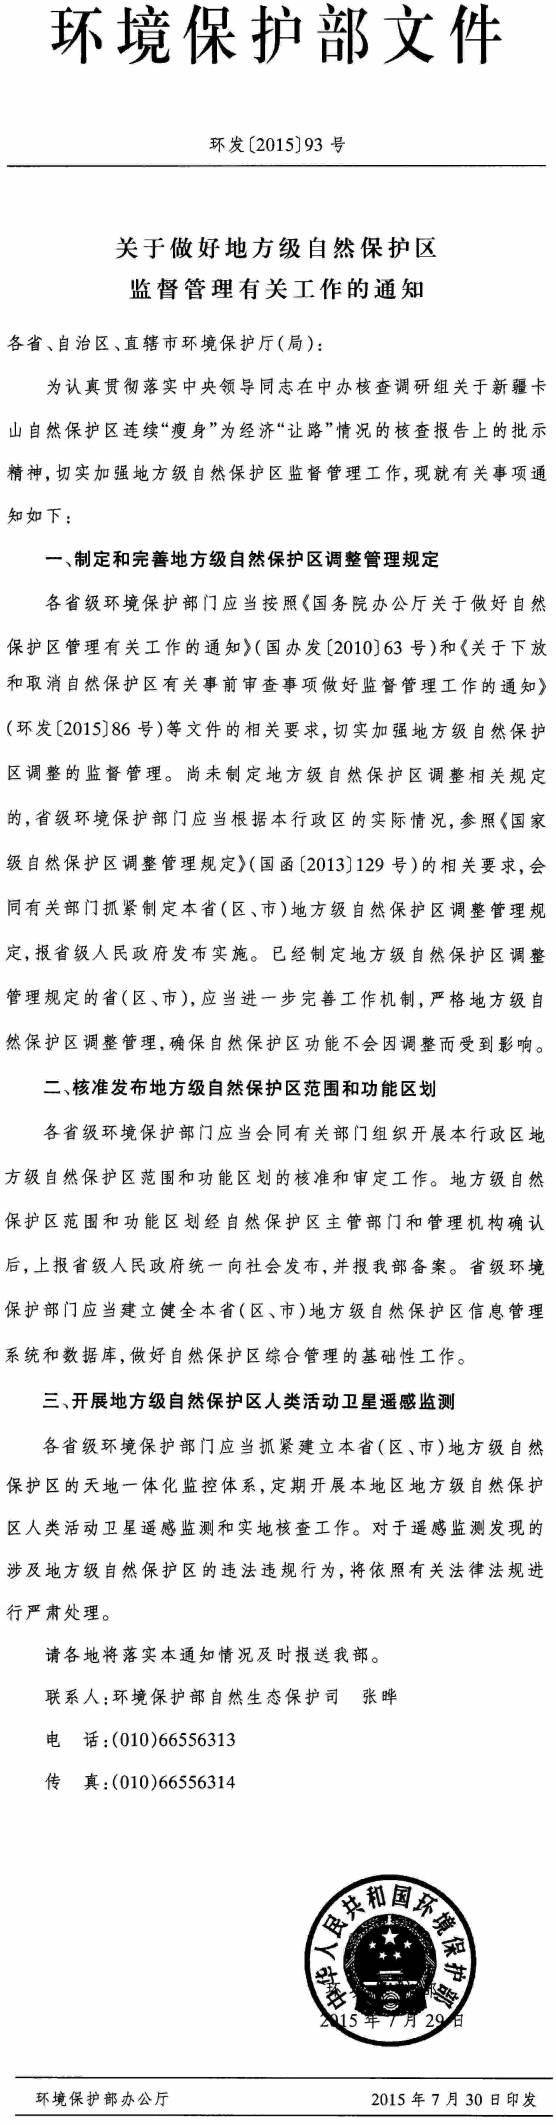 环境保护部文件
环发〔2015〕93号
关于做好地方级自然保护区
监督管理有关工作的通知
各省、自治区、直辖市环境保护厅(局):
为认真贯彻落实中央领导同志在中办核查调研组关于新疆卡
山自然保护区连续“瘦身”为经济“让路”情况的核查报告上的批示
精神,切实加强地方级自然保护区监督管理工作,现就有关事项通
知如下:
一、制定和完善地方级自然保护区调整管理规定
各省级环境保护部门应当按照《国务院办公厅关于做好自然
保护区管理有关工作的通知》(国办发〔2010〕63号)和《关于下放
和取消自然保护区有关事前审查事项做好监督管理工作的通知》
(环发〔2015〕86号)等文件的相关要求,切实加强地方级自然保护
区调整的监督管理。尚未制定地方级自然保护区调整相关规定
的,省级环境保护部门应当根据本行政区的实际情况,参照《国家
级自然保护区调整管理规定》(国函〔2013〕129号)的相关要求,会
同有关部门抓紧制定本省(区、市)地方级自然保护区调整管理规
定,报省级人民政府发布实施。已经制定地方级自然保护区调整
管理规定的省(区、市),应当进一步完善工作机制,严格地方级自
然保护区调整管理,确保自然保护区功能不会因调整而受到影响。
二、核准发布地方级自然保护区范围和功能区划
各省级环境保护部门应当会同有关部门组织开展本行政区地
方级自然保护区范围和功能区划的核准和审定工作。地方级自然
保护区范围和功能区划经自然保护区主管部门和管理机构确认
后,上报省级人民政府统一向社会发布,并报我部备案。省级环境
保护部门应当建立健全本省(区、市)地方级自然保护区信息管理
系统和数据库,做好自然保护区综合管理的基础性工作。
三、开展地方级自然保护区人类活动卫星遥感监测
各省级环境保护部门应当抓紧建立本省(区、市)地方级自然
保护区的天地一体化监控体系,定期开展本地区地方级自然保护
区人类活动卫星遥感监测和实地核查工作。对于遥感监测发现的
涉及地方级自然保护区的违法违规行为,将依照有关法律法规进
行严肃处理。
请各地将落实本通知情况及时报送我部。
联系人:环境保护部自然生态保护司 张晔
电 话:(010)66556313
传 真:(010)66556314
中华人民共和国环境保护部
2015年7月29日
环境保护部办公厅 2015年7月30日印发